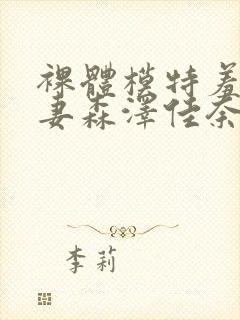 裸體模特羞
妻森澤佳奈
李莉